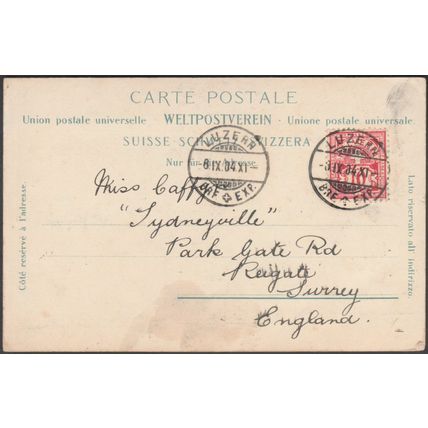 CARTE POSTALE
Union postale universelle WELTPOSTVEREIN - Unione postale universale.
SUISSE SCHWEIZ SVIZZERA
Nur für die Adresse.
LUZERN
-8.IX.04.XI-
BRF. EXP.
LUZERN
-8.IX.04.XI-
BRF. EXP.
10
Miss Caffyn
"Sydneyville"
Park Gate Rd
Reigate
Surrey
England.
Côté reservé à l'adresse.
Lato riservato all' indirizzo.